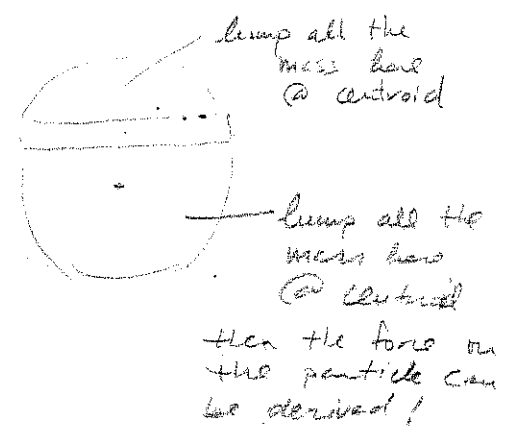 lump all the
mass here
@ centroid
lump all the
mass here
@ centroid
then the force on
the particle can
be derived!